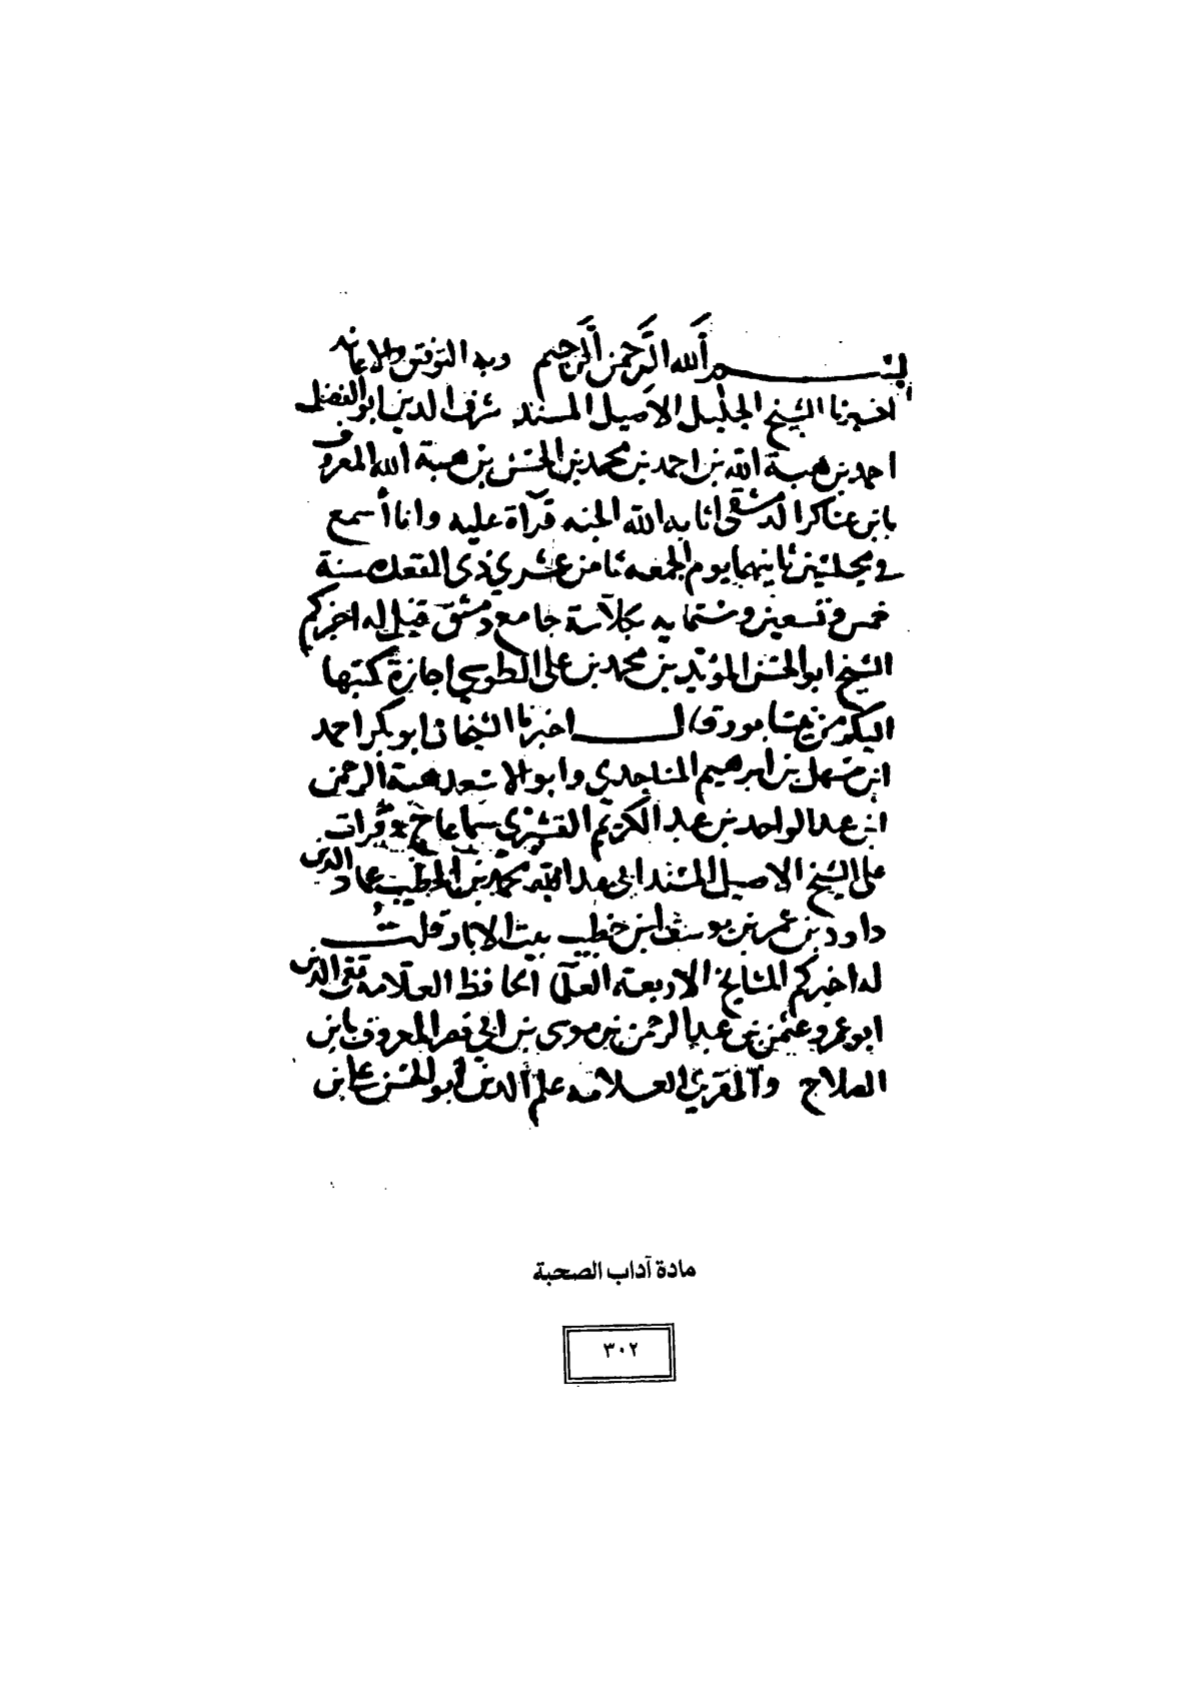 بسم الله الرحمن الرحيم وبه التوفيق والاعانه
اخبرنا الشيخ الجليل الاصيل المسند شرف الدين ابو الفضل
احمد بن هبة الله بن احمد بن محمد بن الحسن بن هبة الله المعروف
بابن عساكر الدمشقى اثابه الله الجنه قرآة عليه وانا أسمع
في مجلسين ثانيهما يوم الجمعه ثامن عشري ذى القعده سنة
خمس وتسعين وستمايه بكلاسة جامع دمشق قيل له اخبركم
الشيخ ابو الحسن المؤيد بن محمد بن على الطوسي اجازة كتبها
اليكم من نيسابور قال اخبرنا الشيخان ابو بكر احمد
ابن سهل بن ابرهيم المساجدي وابو الاسعد هبة الرحمن
ابن عبد الواحد بن عبد الكريم القشيرى سماعا ح وقرات
على الشيخ الاصيل المسند ابى عبد الله محمد بن الخطيب عماد الدين
داود بن عمر بن يوسف ابن خطيب بيت الابار قلت
له اخبركم المشايخ الاربعة الحافظ العلامة تقى الدين
ابو عمرو عثمن بن عبد الرحمن بن موسى بن ابي نصر المعروف بابن
الصلاح والمقرئ العلامة علم الدين ابو الحسن على بن
مادة آداب الصحبة
٣٠٢